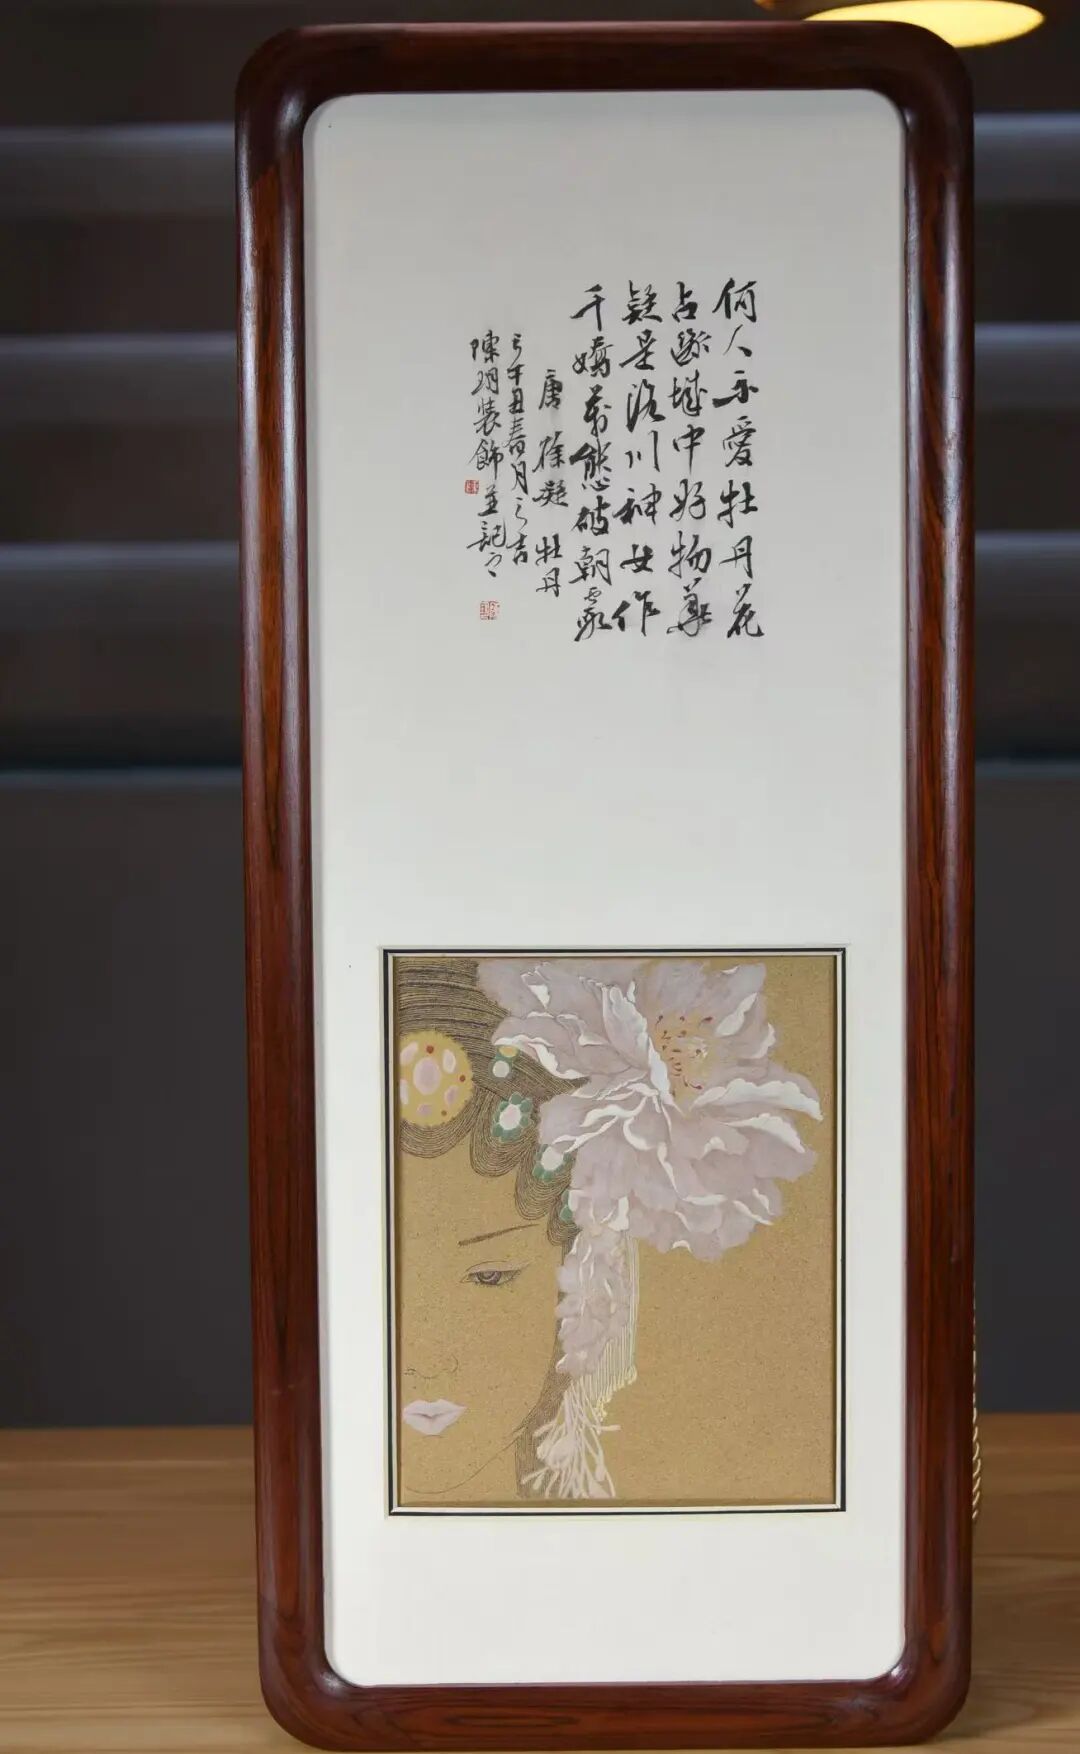 何人不愛牡丹花
占斷城中好物華
疑是洛川神女作
千嬌萬態破朝霞
唐 徐凝 牡丹
辛丑春月之吉
陳玥裝飾並記之